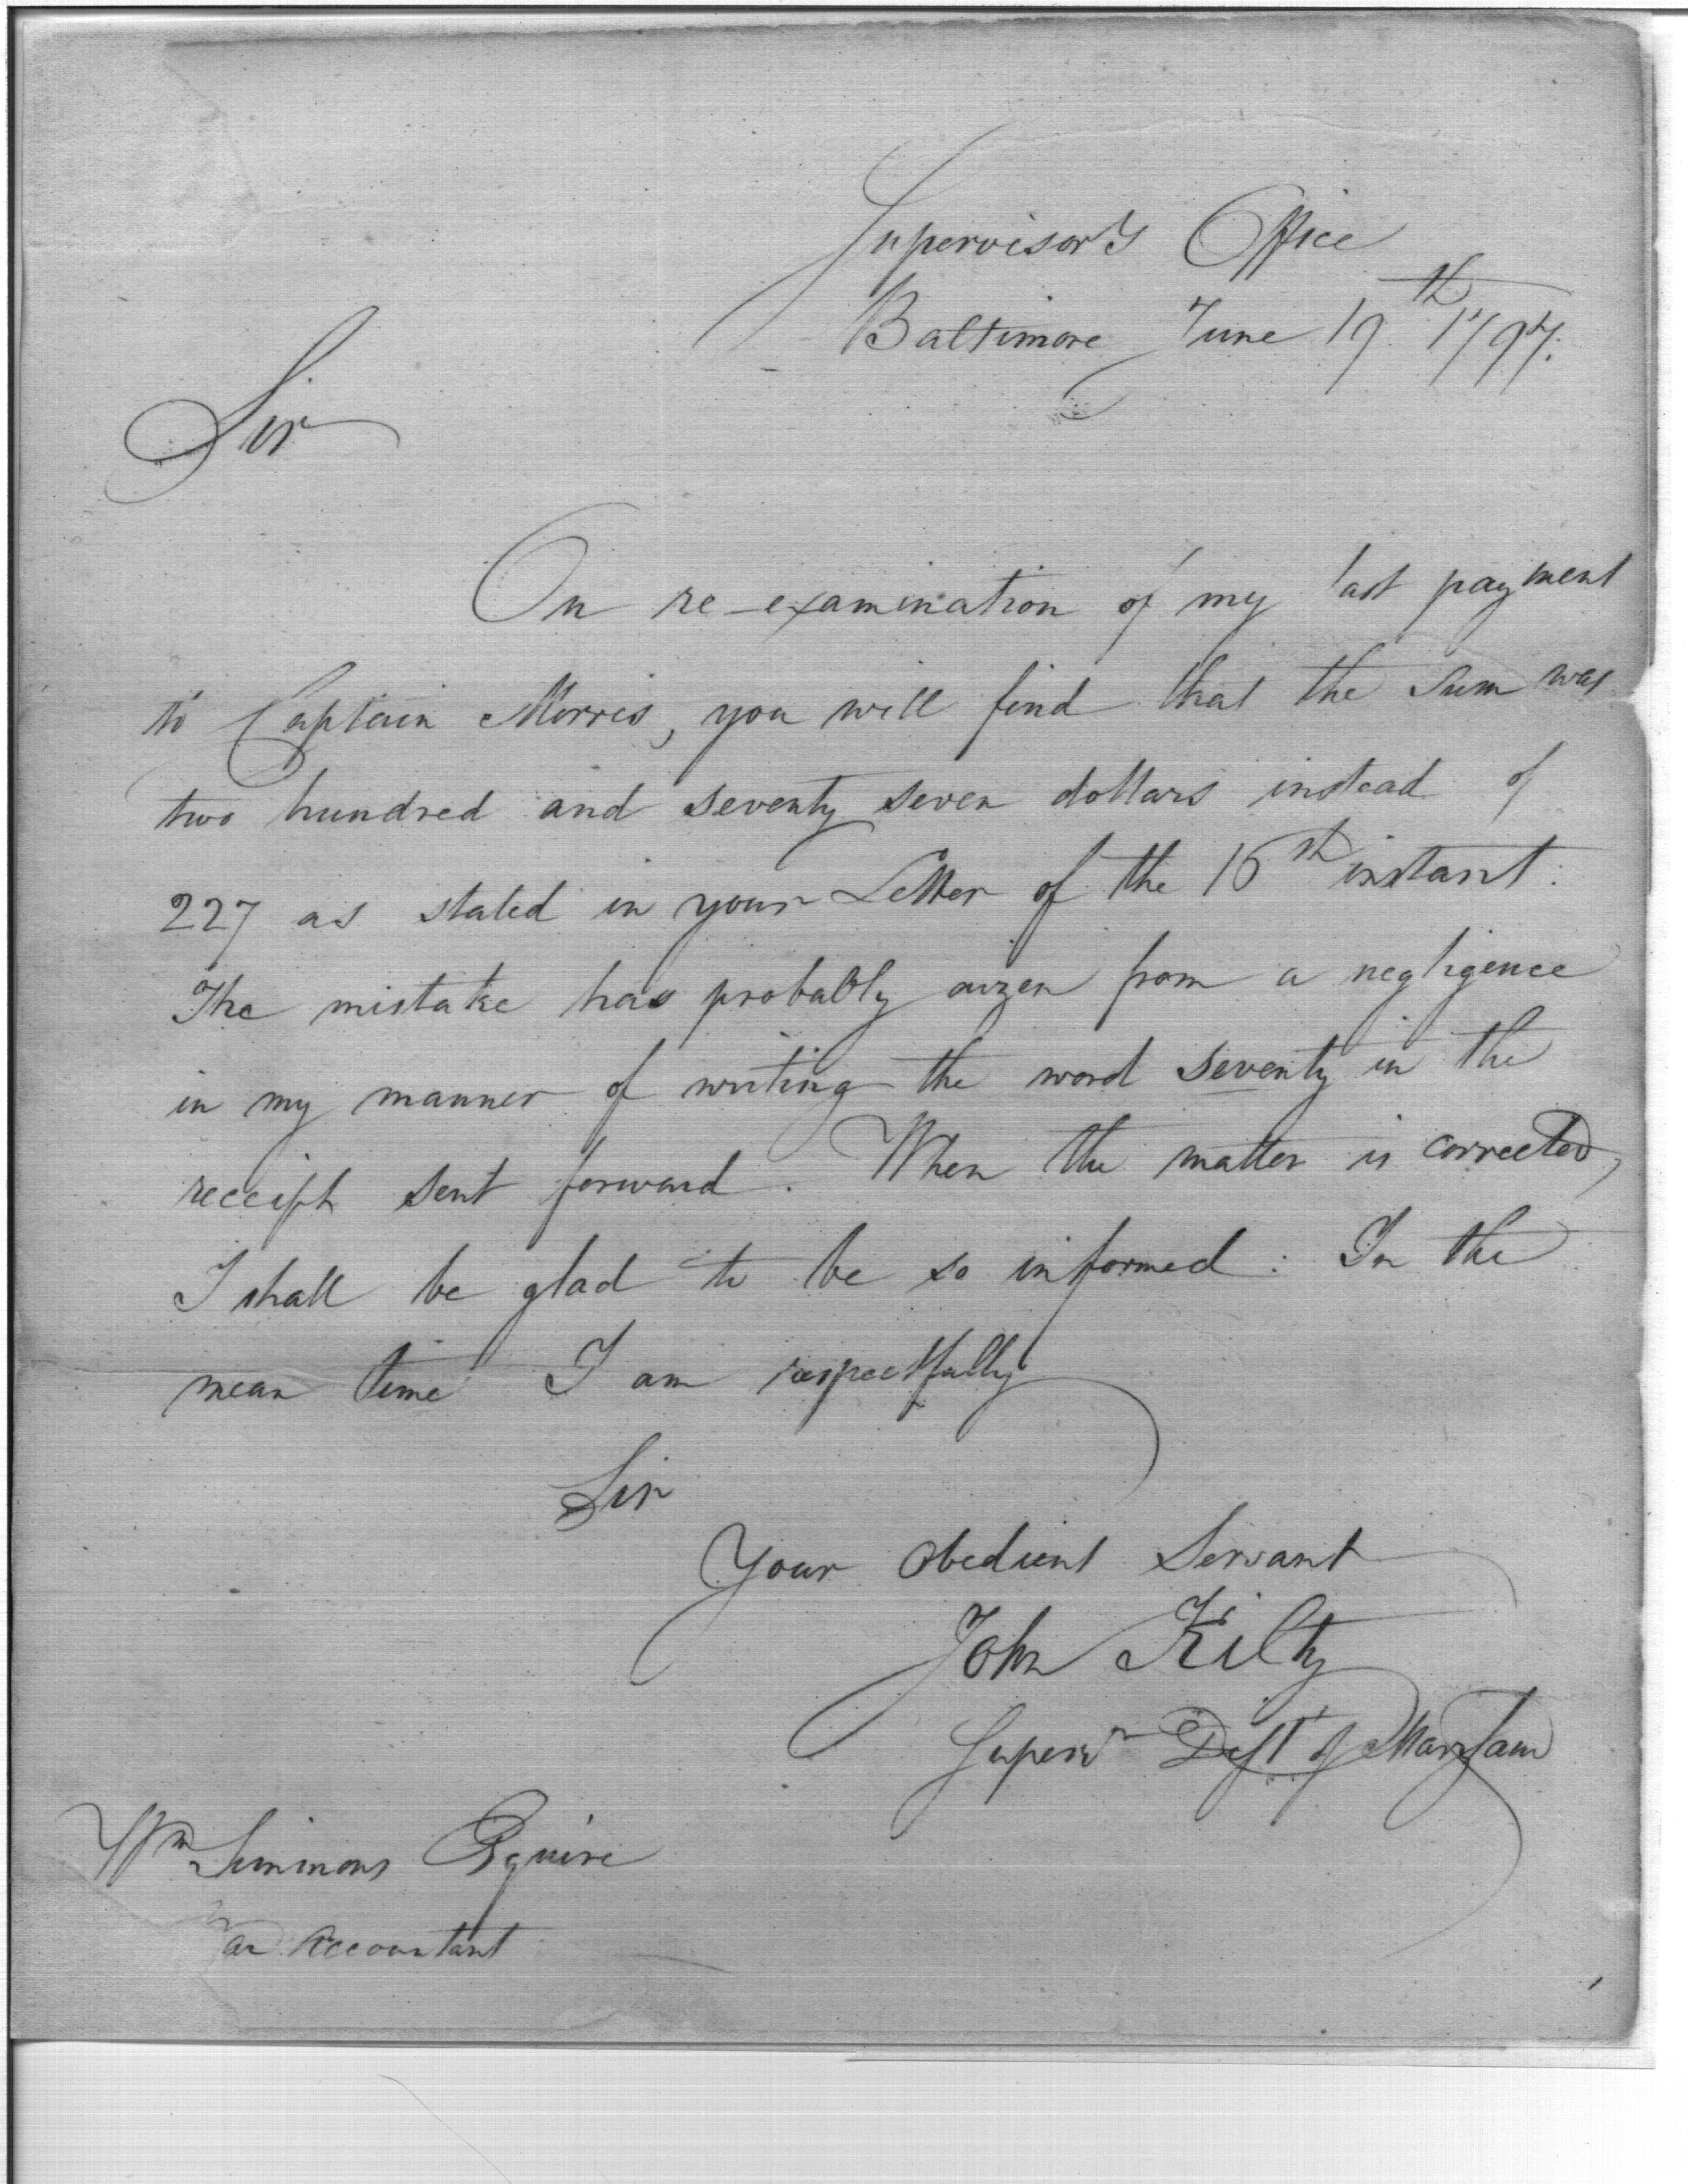 Supervisor's Office
Baltimore June 19th 1797.
Sir
On re-examination of my last payment
to Captain Morris, you will find that the Sum was
two hundred and seventy seven dollars instead of
227 as stated in your Letter of the 16th instant:
The mistake has probably arizen from a negligence
in my manner of writing the word seventy in the
receipt sent forward. When the matter is corrected,
I shall be glad to be so informed: In the
mean time I am respectfully
Sir
Your obedient Servant
John Kilty
Superv'r Dist of Maryland
Wm Simmons Esquire
Accountant